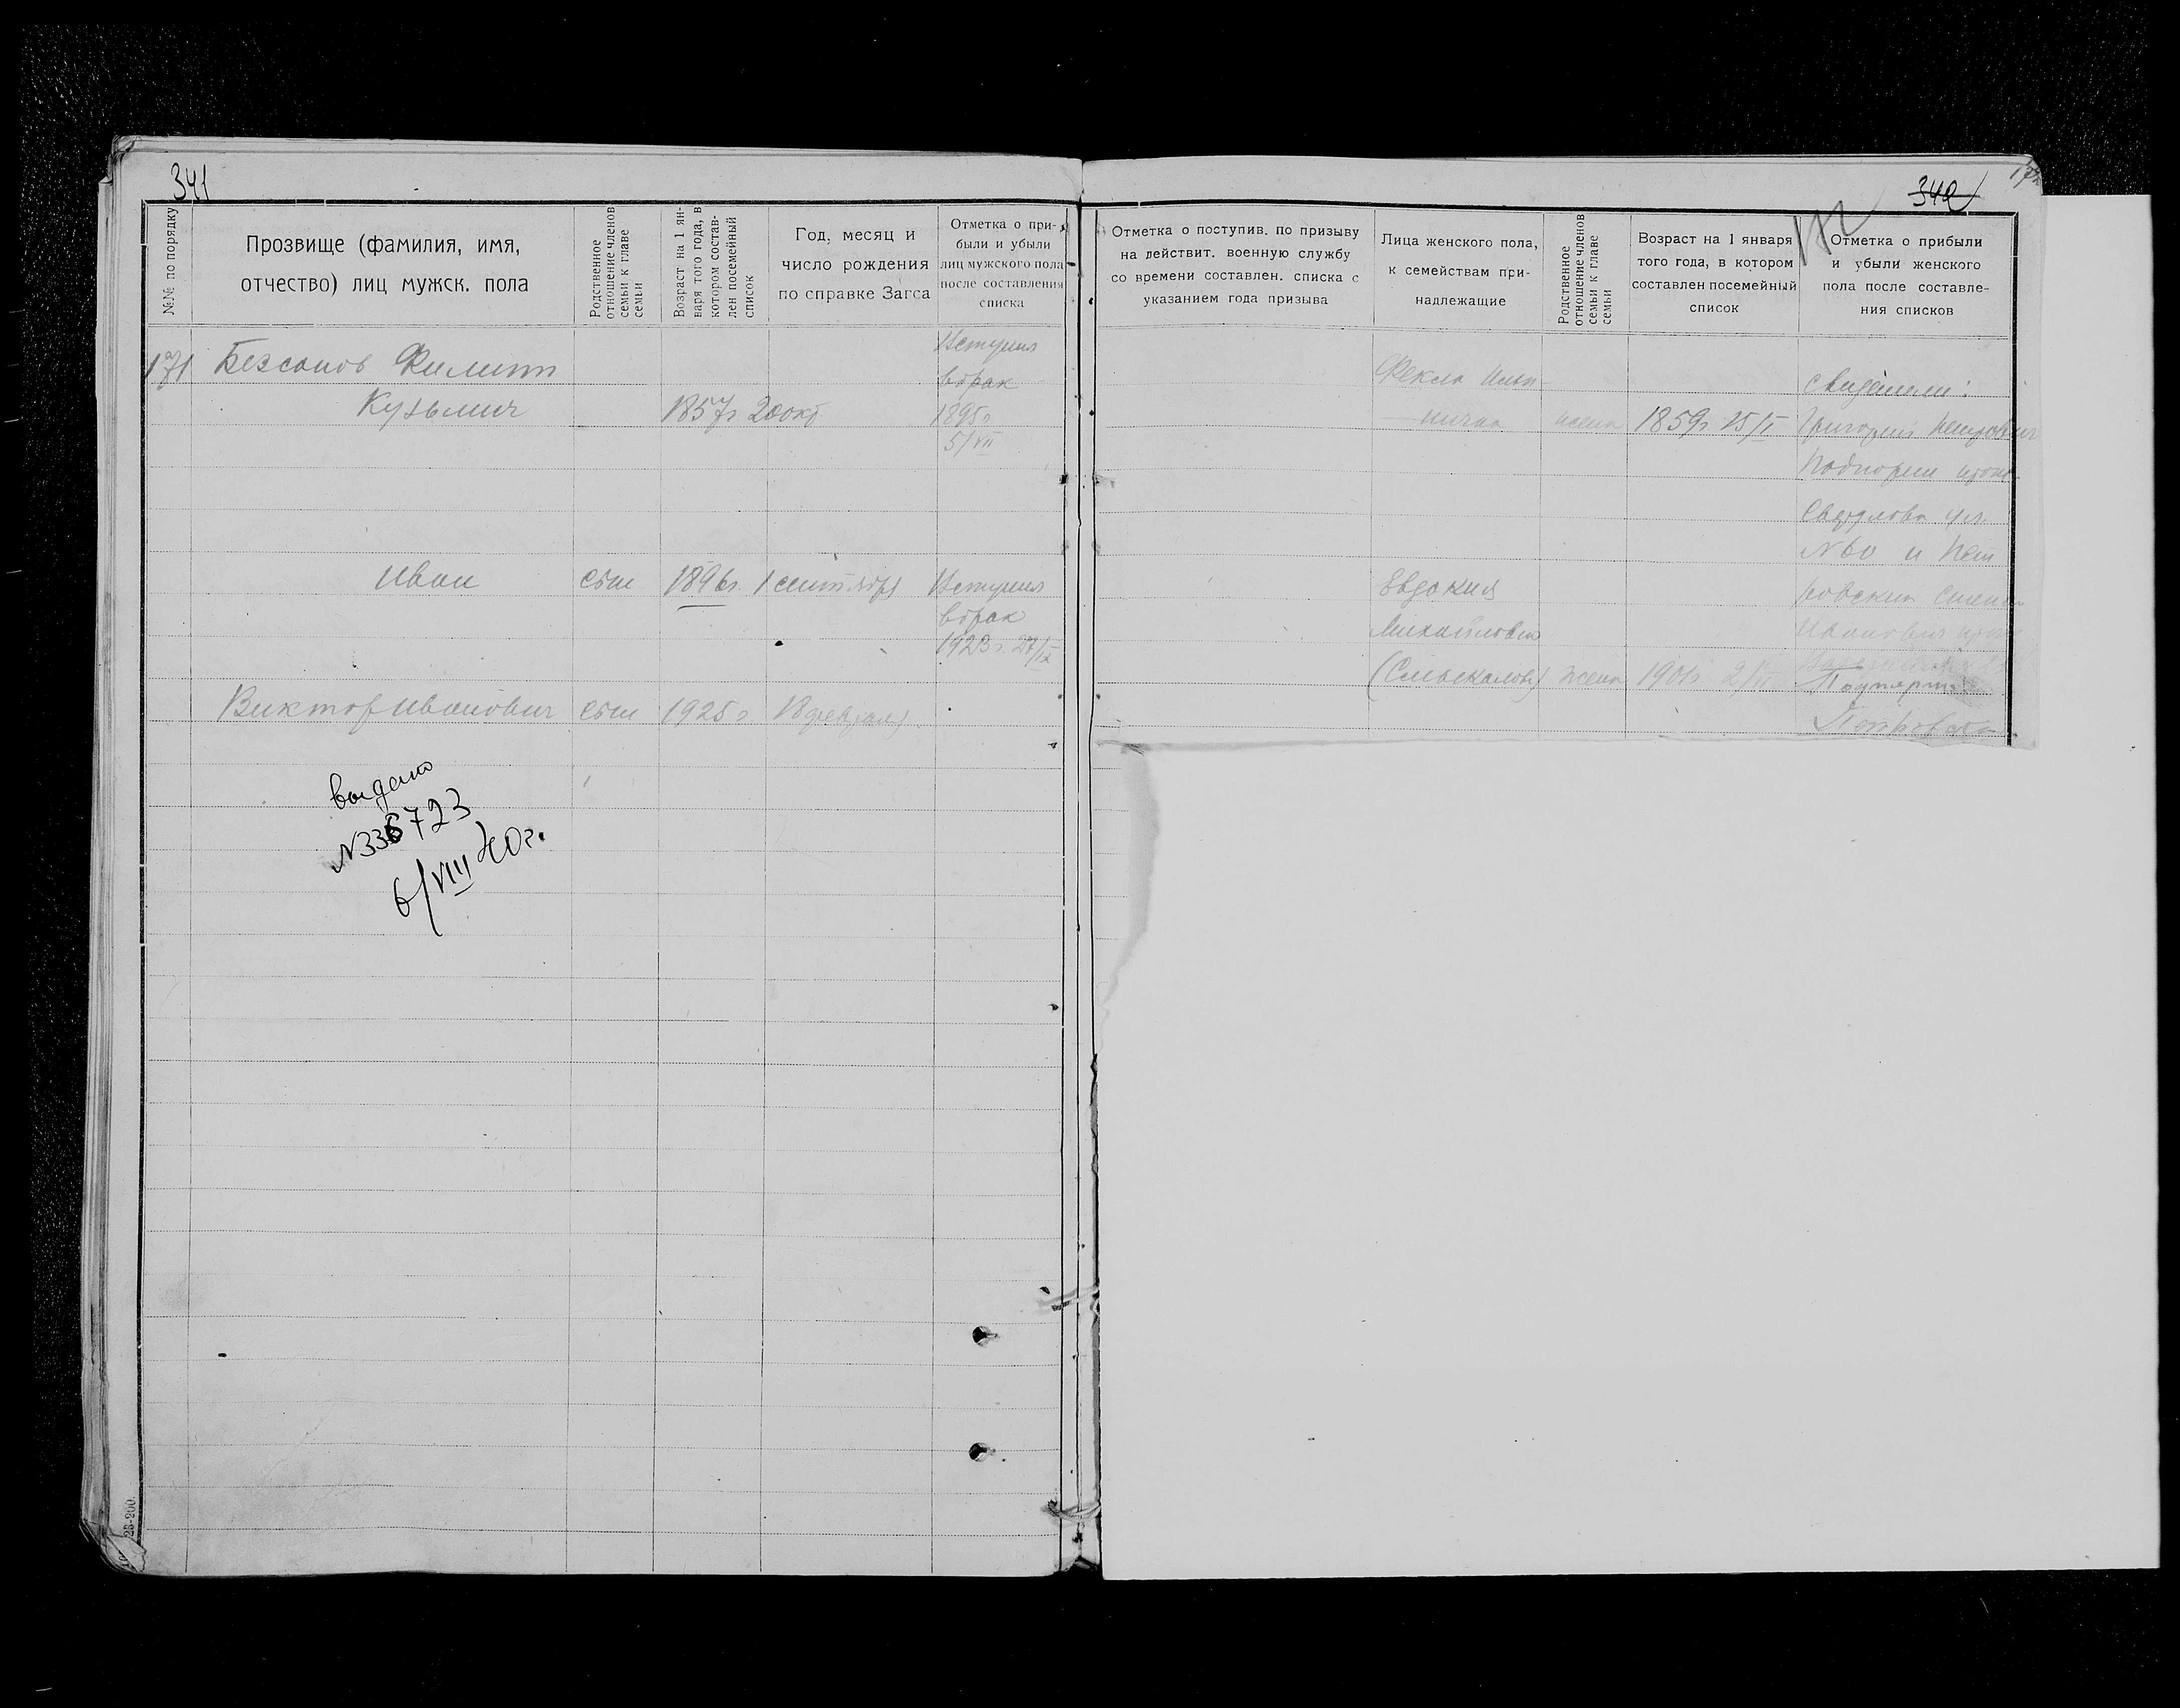 341
№№ по порядку
Прозвище (фамилия, имя,
отчество) лиц мужск. пола
Родственное
отношение членов
семьи к главе
семьи
Возраст на 1 ян-
варя того года, в
котором состав-
лен посемейный
список
Год, месяц и
число рождения
по справке Загса
Отметка о при-
были и убыли
лиц мужского пола
после составления
списка
171 Безсонов Филипп
Кузьмич 1857г 20 окт
Вступил
в брак
1895г
5/VII
Иван сын 1896г. 1 сентября
Вступил
в брак
1923г. 27/IX
Виктор Иванович сын 1925г. 18 февраля
выдано
№336723
6/VIII 40г.
23-200.
342
172
Отметка о поступив. по призыву
на действит. военную службу
со времени составлен. списка с
указанием года призыва
Лица женского пола,
к семействам при-
надлежащие
Родственное
отношение членов
семьи к главе
семьи
Возраст на 1 января
того года, в котором
составлен посемейный
список
Отметка о прибыли
и убыли женского
пола после составле-
ния списков
Фекла Ильи-
нична жена 1859г. 15/I
Евдокия
Михайловна
жена 1901г.
свидетели:
Григорий Петрович
Свердлова ул.
№60 и Пет
ровский
Ивановил
Петровска